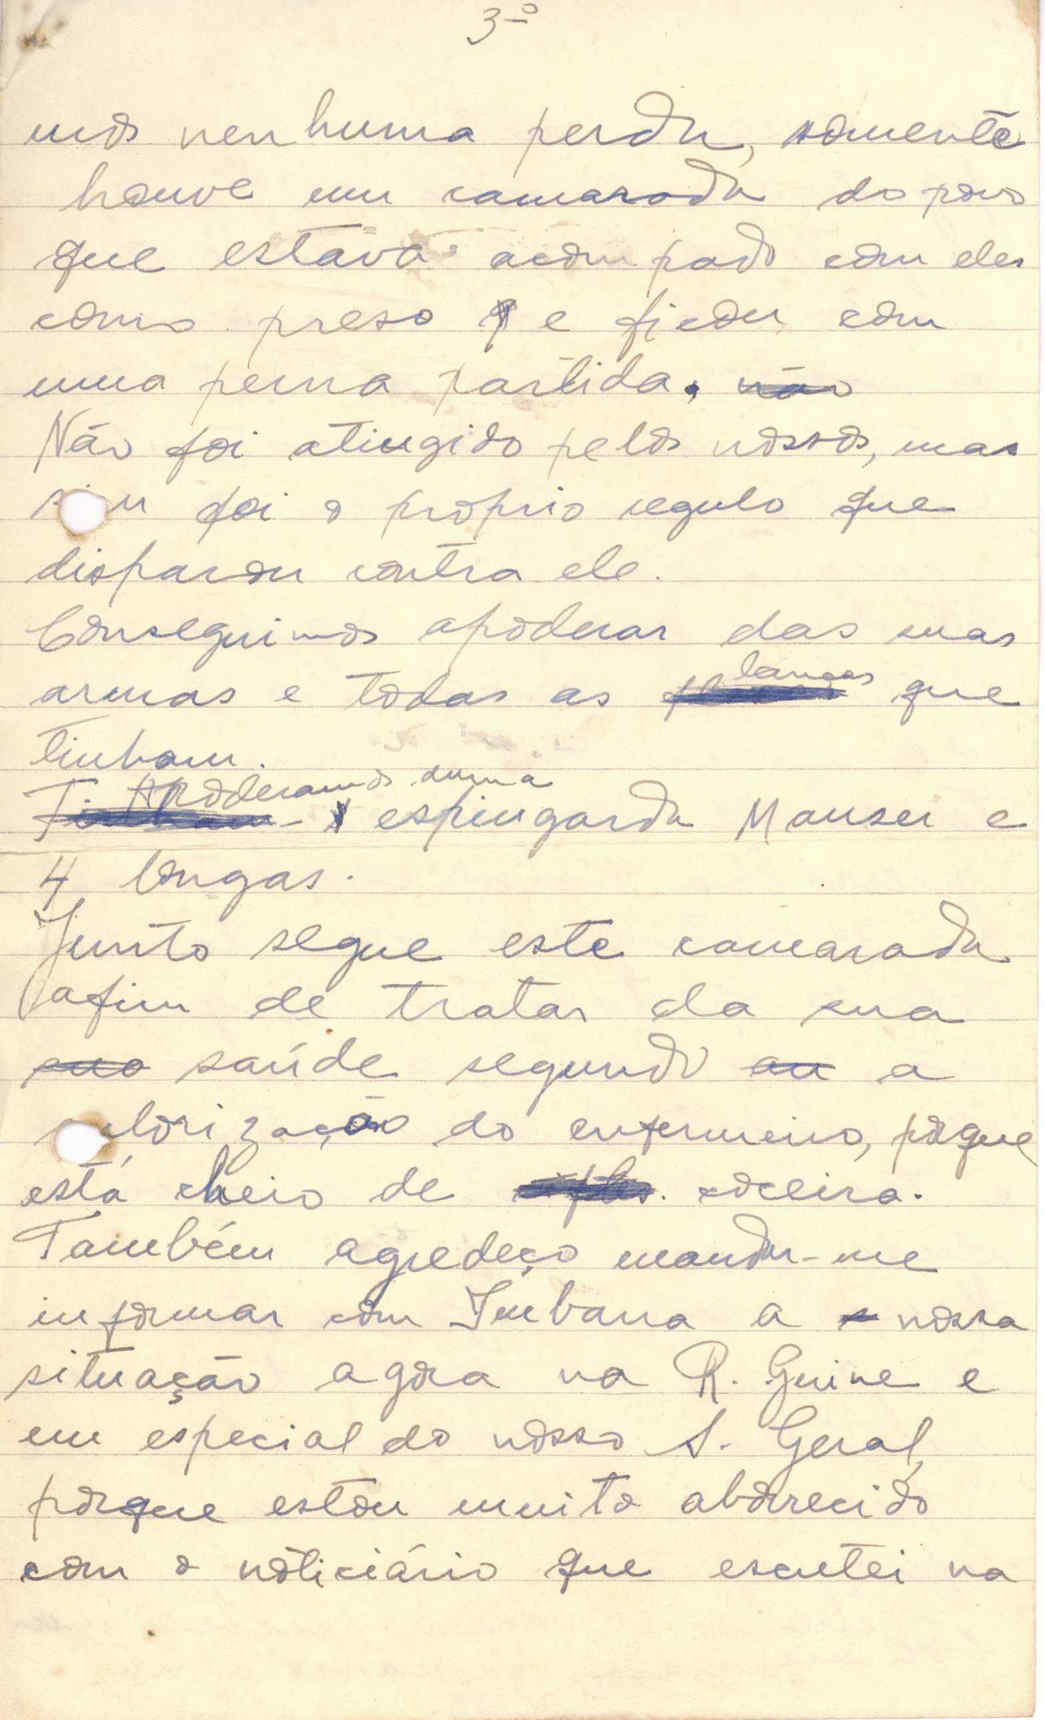 3º
mos nenhuma perda, somente
houve um camarada do povo
que estava acompado com eles
como preso e ficou com
uma perna partida. não
Não foi atingido pelos nossos, mas
sim foi o próprio regulo que
disparou contra ele.
Conseguimos apoderar das suas
armas e todas as lanças que
tinham.
Apoderamos duma
Tinham 1 espingarda Mauser e
4 longas.
Junto segue este camarada
afim de tratar da sua
sua saúde segundo au a
valorização do enfermeiro, porque
está cheio de coceira.
Também agredeço mandar-me
informar com Imbana a nossa
situação agora na R. Guine e
em especial do nosso S. Geral,
porque estou muito aborecido
com o noticiário que escutei na